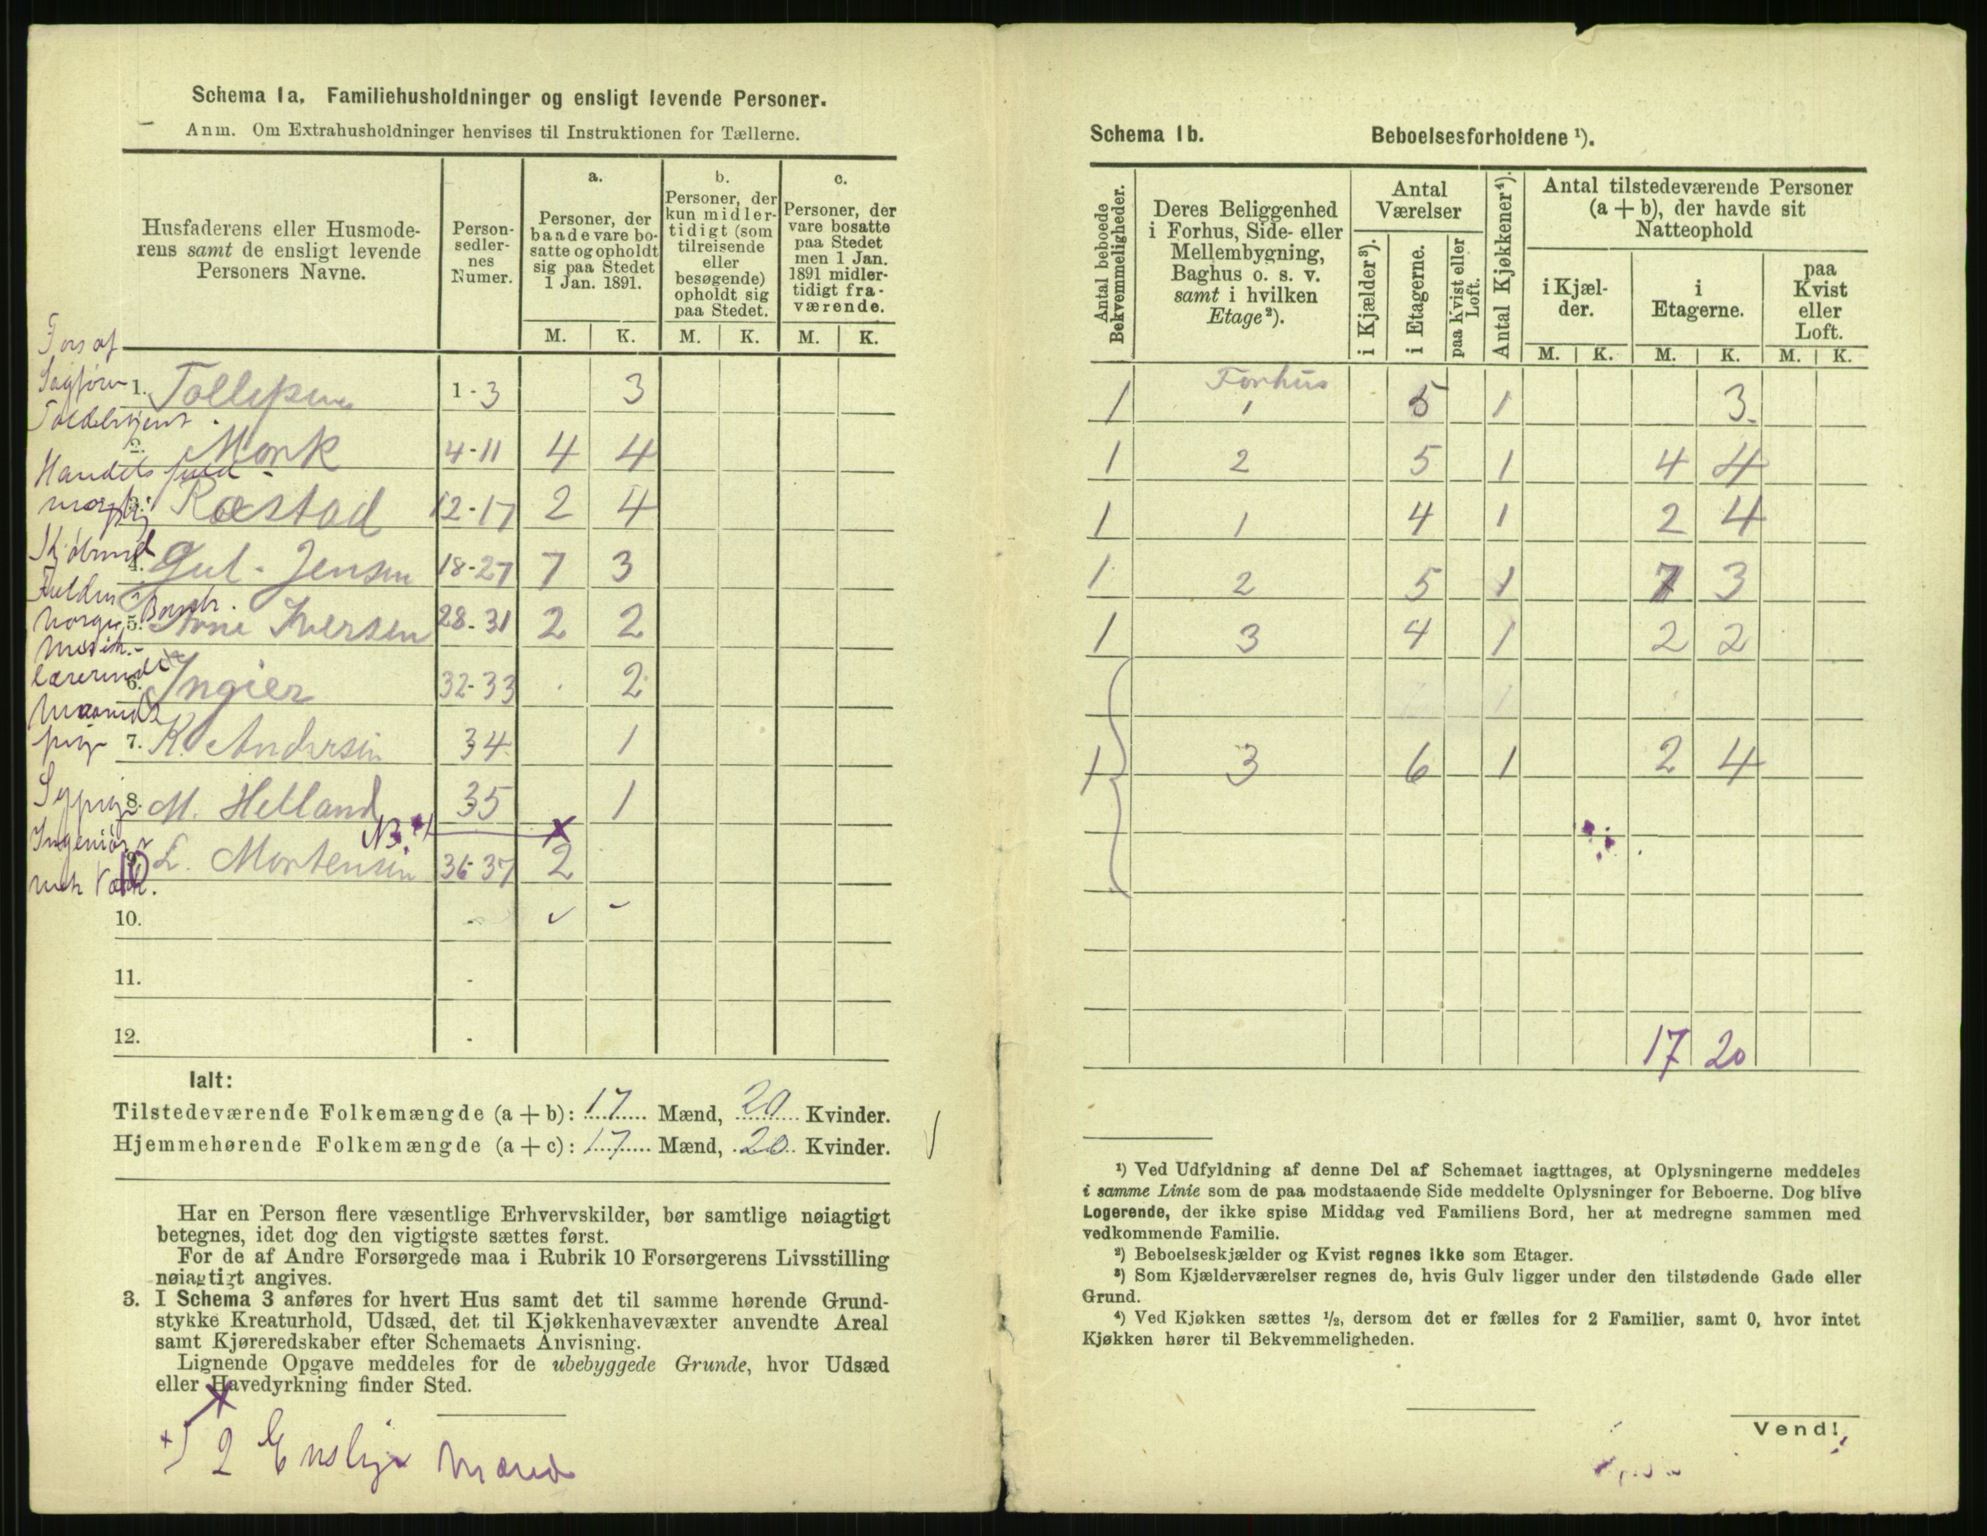 Schema 1a. Familiehusholdninger og ensligt levende Personer.
Anm. Om Extrahusholdninger henvises til Instruktionen for Tællerne.
Husfaderens eller Husmoderens samt de ensligt levende Personers Navne.
Personsedlernes Numer.
a. Personer, der baade vare bosatte og opholdt sig paa Stedet 1 Jan. 1891.
b. Personer, der kun midlertidigt (som tilreisende eller besøgende) opholdt sig paa Stedet.
c. Personer, der vare bosatte paa Stedet men 1 Jan. 1891 midlertidigt fraværende.
M. K. M. K. M. K.
Fors af
Sagfører
1. Tollefsen 1-3 3
2. Mork 4-11 4 4
Handels
3. Ræstad 12-17 2 4
4. Jensen 18-27 7 3
5. Iversen 28-31 2 2
lærerinde
6. Ingier 32-33 2
7. K. Andersen 34 1
Sypige
8. M. Helland 35 1
NB.
Ingeniør
9. L. Mortensen 36-37 2
10. -
11. -
12. -
Ialt:
Tilstedeværende Folkemængde (a + b): 17 Mænd, 20 Kvinder.
Hjemmehørende Folkemængde (a + c): 17 Mænd, 20 Kvinder.
Har en Person flere væsentlige Erhvervskilder, bør samtlige nøiagtigt
betegnes, idet dog den vigtigste sættes først.
For de af Andre Forsørgede maa i Rubrik 10 Forsørgerens Livsstilling
nøiagtigt angives.
3. I Schema 3 anføres for hvert Hus samt det til samme hørende Grund-
stykke Kreaturhold, Udsæd, det til Kjøkkenhavevæxter anvendte Areal
samt Kjøreredskaber efter Schemaets Anvisning.
Lignende Opgave meddeles for de ubebyggede Grunde, hvor Udsæd
eller Havedyrkning finder Sted.
2 Enslige Mænd
Schema 1b. Beboelsesforholdene ¹).
Antal beboede Bekvemmeligheder.
Deres Beliggenhed i Forhus, Side- eller Mellembygning, Baghus o. s. v. samt i hvilken Etage²).
Antal Værelser
i Kjælder³).
i Etagerne.
paa Kvist eller Loft.
Antal Kjøkkener⁴).
Antal tilstedeværende Personer (a + b), der havde sit Natteophold
i Kjælder.
i Etagerne.
paa Kvist eller Loft.
M. K. M. K. M. K.
1 Forhus 1 5 1 3
1 2 5 1 4 4
1 1 4 1 2 4
1 2 5 1 7 3
1 3 4 1 2 2
1 3 6 1 2 4
17 20
¹) Ved Udfyldning af denne Del af Schemaet iagttages, at Oplysningerne meddeles
i samme Linie som de paa modstaaende Side meddelte Oplysninger for Beboerne. Dog blive
Logerende, der ikke spise Middag ved Familiens Bord, her at medregne sammen med
vedkommende Familie.
²) Beboelseskjælder og Kvist regnes ikke som Etager.
³) Som Kjælderværelser regnes de, hvis Gulv ligger under den tilstødende Gade eller
Grund.
⁴) Ved Kjøkken sættes ½, dersom det er fælles for 2 Familier, samt 0, hvor intet
Kjøkken hører til Bekvemmeligheden.
Vend!